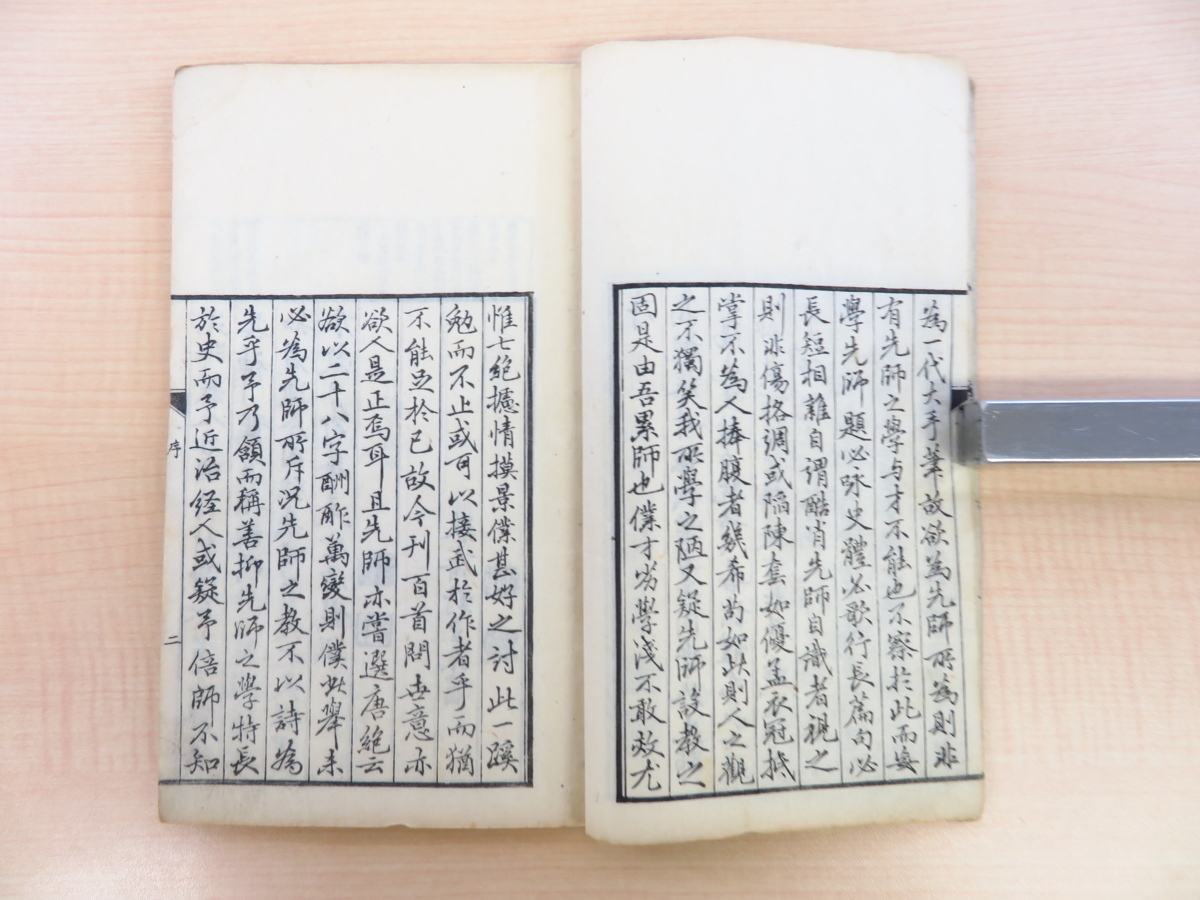 為一代大手筆故欲為先師所為則非
有先師之學与才不能也不察於此而妄
學先師題必咏史體必歌行長篇句必
長短相雜自謂酷肖先師自識者視之
則非傷格調或陥陳套如優孟衣冠抵
掌不為人捧腹者幾希苟如此則人之觀
之不獨笑我所學之陋又疑先師設教之
固是由吾累師也僕才劣學淺不敢效尤
惟七絶攄情摸景僕甚好之討此一蹊
勉而不止或可以接武於作者乎而猶
不能足於已故今刊百首問世意亦
欲人是正焉耳且先師亦嘗選唐絶云
欲以二十八字酬酢萬變則僕此舉未
必為先師所斥況先師之教不以詩為
先乎予乃頷而稱善抑先師之學特長
於史而予近治経人或疑予倍師不知
序
二